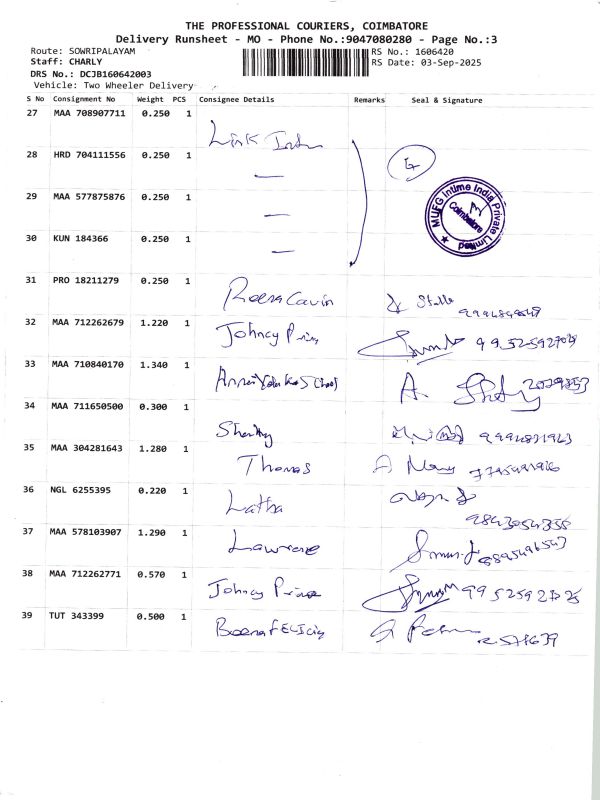 THE PROFESSIONAL COURIERS, COIMBATORE
Delivery Runsheet - MO - Phone No.:9047080280 - Page No.:3
Route: SOWRIPALAYAM
RS No.: 1606420
Staff: CHARLY
RS Date: 03-Sep-2025
DRS No.: DCJB160642003
Vehicle: Two Wheeler Delivery
S No Consignment No Weight PCS Consignee Details Remarks Seal & Signature
27 MAA 708907711 0.250 1 Link
28 HRD 704111556 0.250 1 —
29 MAA 577875876 0.250 1 —
MUFG Intime India Private Limited
Coimbatore
30 KUN 184366 0.250 1 —
31 PRO 18211279 0.250 1 Reena Cavin
32 MAA 712262679 1.220 1 Johncy
33 MAA 710840170 1.340 1
34 MAA 711650500 0.300 1
35 MAA 304281643 1.280 1 Thomas
36 NGL 6255395 0.220 1 Latha
37 MAA 578103907 1.290 1 Lawrence
38 MAA 712262771 0.570 1 Johncy Prince
39 TUT 343399 0.500 1 Beena